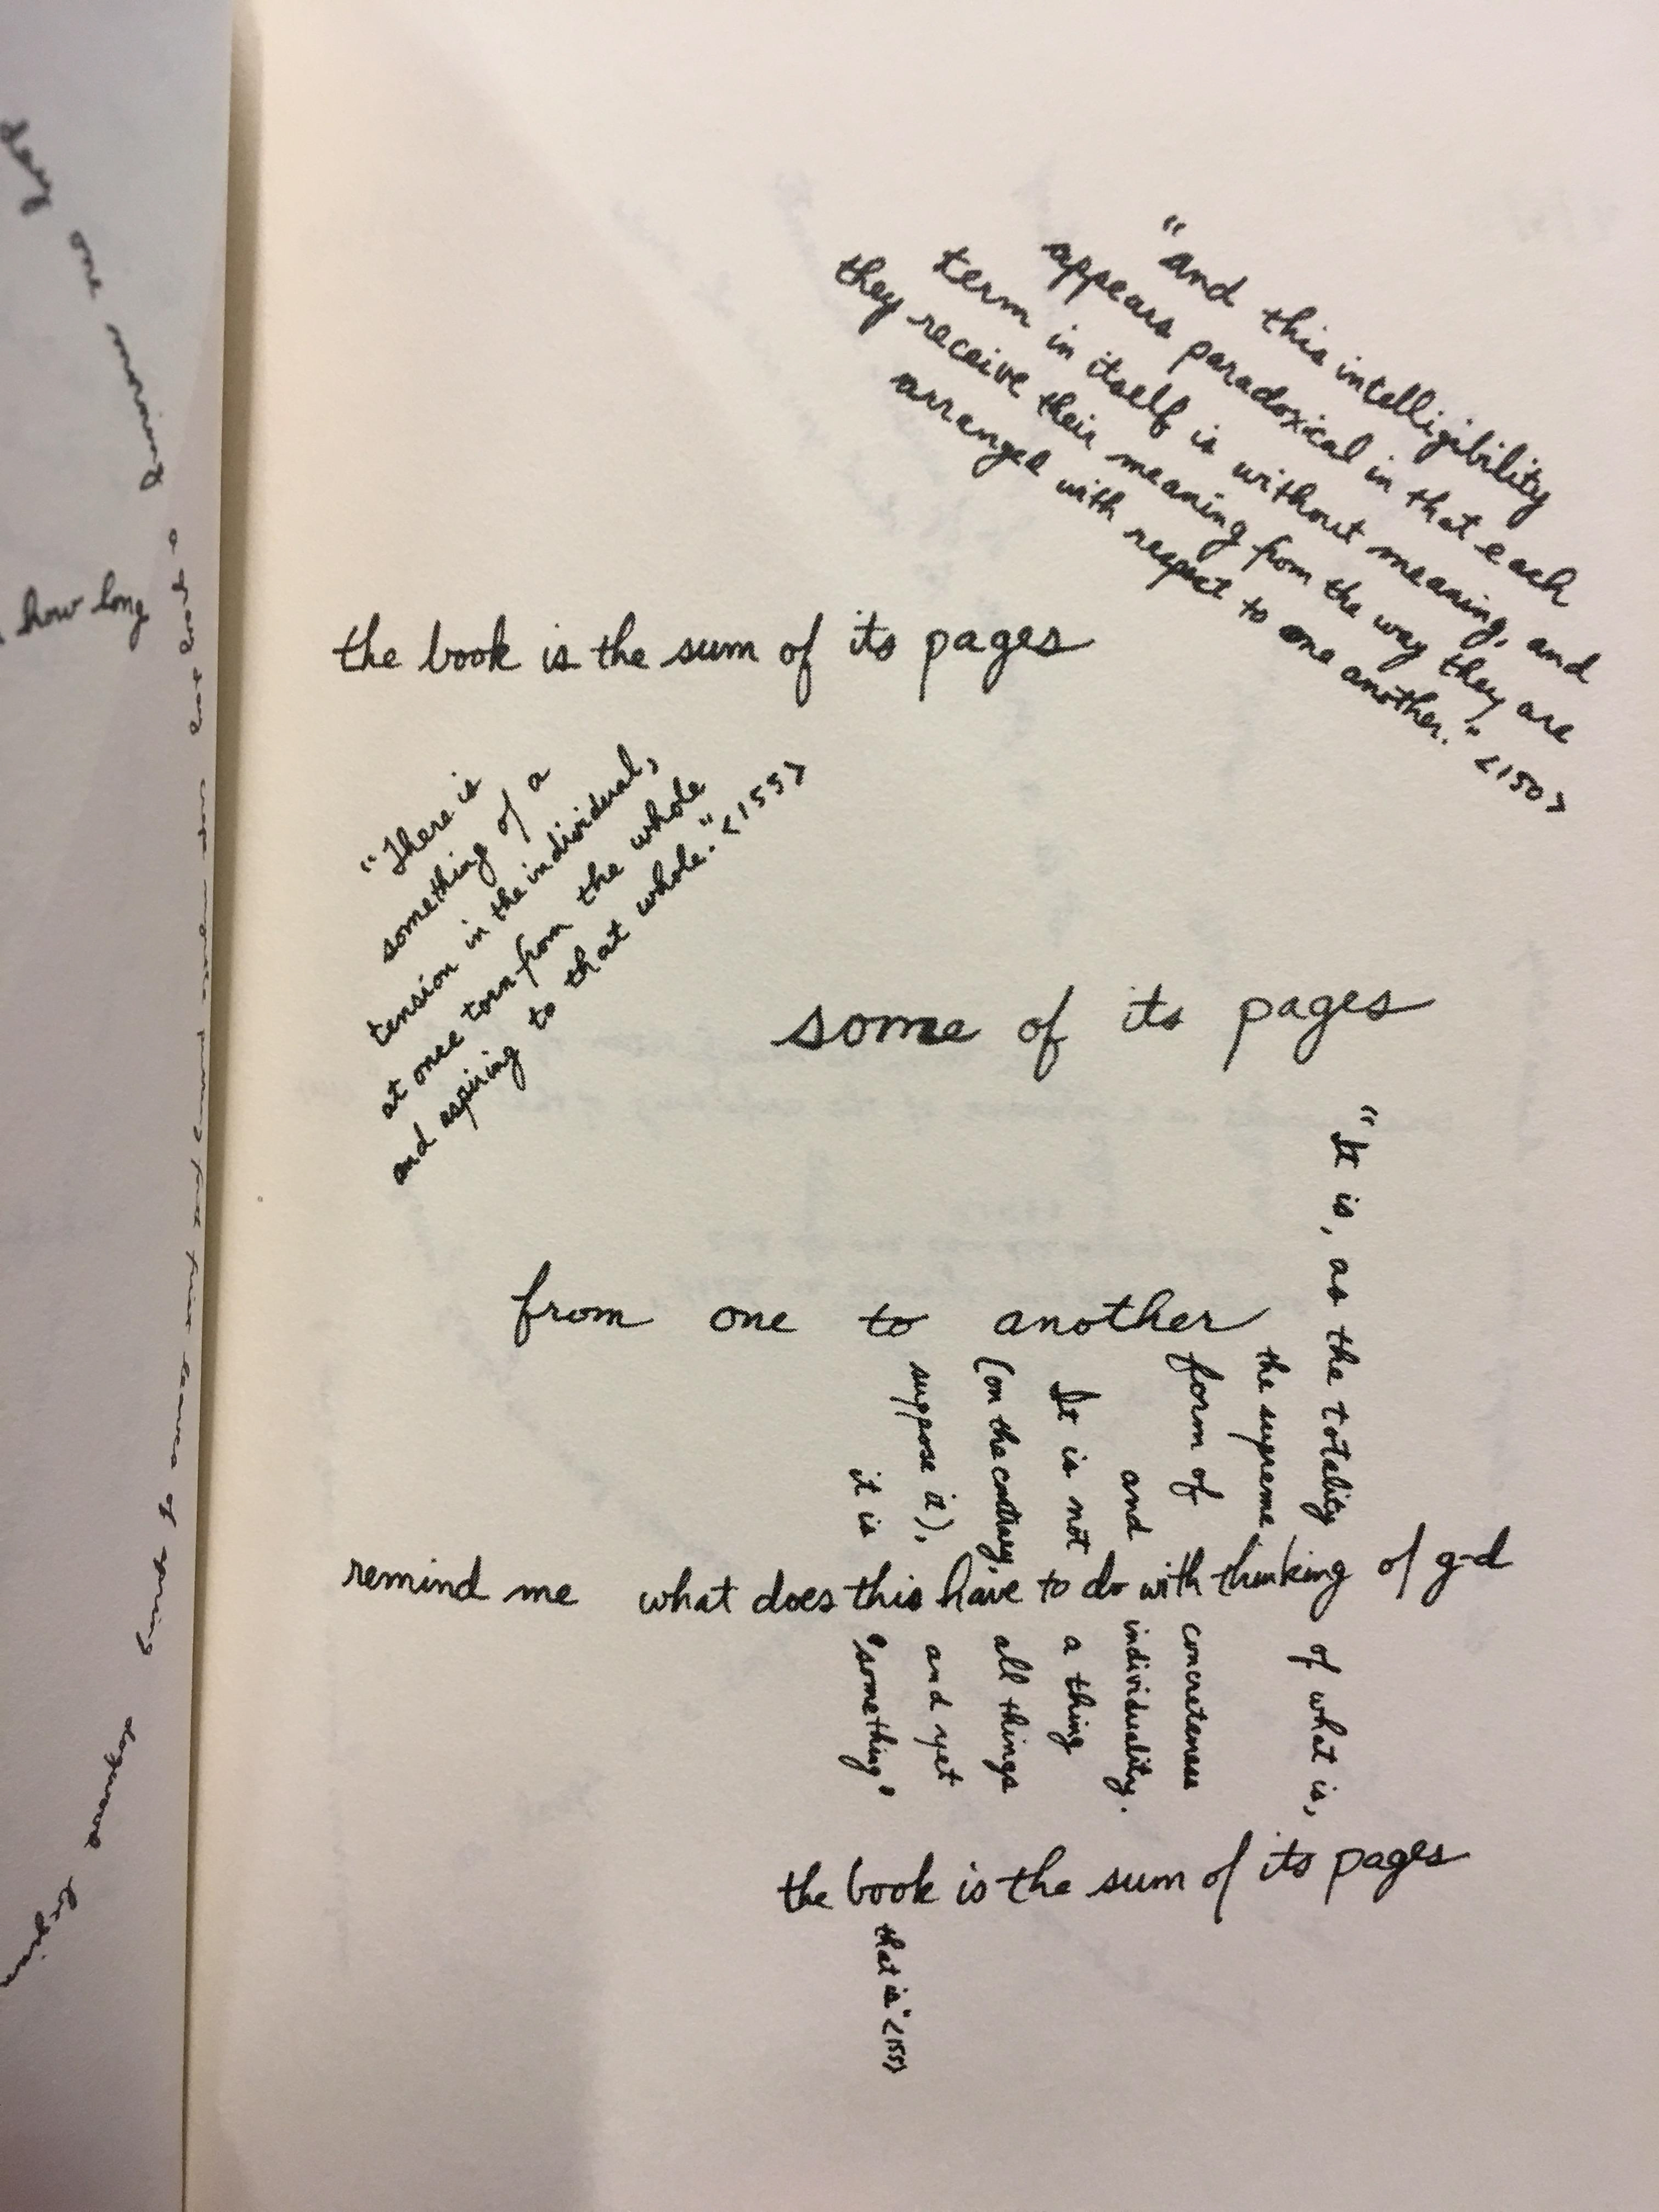 day
one
morning
how long
"and this intelligibility
appears paradoxical in that each
term in itself is without meaning, and
they receive their meaning from the way they are
arranged with respect to one another." <150>
the book is the sum of its pages
"There is
something of a
tension in the individual,
at once torn from the whole
and aspiring to that whole." <155>
some of its pages
from one to another
"It is, as the totality of what is,
the supreme
form of concreteness
and individuality.
It is not a thing
(on the contrary, all things
suppose it), and yet
it is 'something'
that is" <155>
remind me what does this have to do with thinking of g-d
the book is the sum of its pages